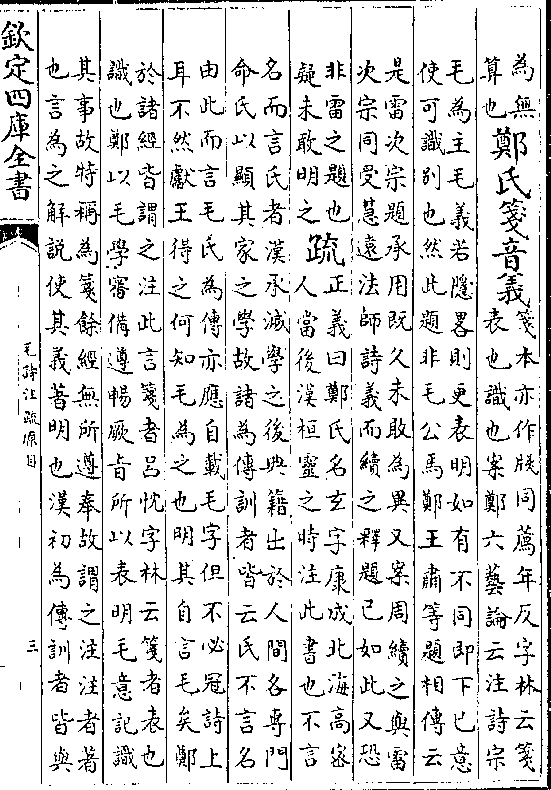 為無
算也鄭氏箋音義箋本亦作牋同薦年反字林云箋
表也識也案鄭六藝論云注詩宗
毛為主毛義若隱畧則更表明如有不同即下已意
使可識别也然此題非毛公馬鄭王肅等題相傳云
是雷次宗題承用既久未敢為異又案周續之與雷
次宗同受慧遠法師詩義而續之釋題已如此又恐
非雷之題也
疑未敢明之疏正義曰鄭氏名玄字康成北海高密
人當後漢桓靈之時注此書也不言
名而言氏者漢承滅學之後典籍出於人間各專門
命氏以顯其家之學故諸為傳訓者皆云氏不言名
由此而言毛氏為傳亦應自載毛字但不必冠詩上
耳不然獻王得之何知毛為之也明其自言毛矣鄭
於諸經皆謂之注此言箋者吕忱字林云箋者表也
識也鄭以毛學審備遵暢厥旨所以表明毛意記識
其事故特稱為箋餘經無所遵奉故謂之注注者著
也言為之解説使其義著明也漢初為傳訓者皆與
欽定四庫全書
毛詩注疏原目
三